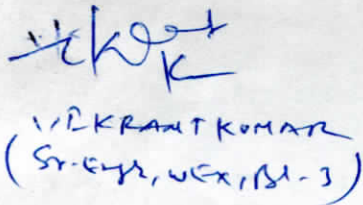 VIKRANT KUMAR
(Sr. Engr, WEX, Bl-3)